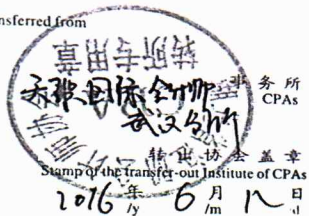 nsferred from
转所专用章
国际会计师 事务所
CPAs
武汉分所
转出协会盖章
Stamp of the transfer-out Institute of CPAs
2016 年 6 月 12 日
/y /m